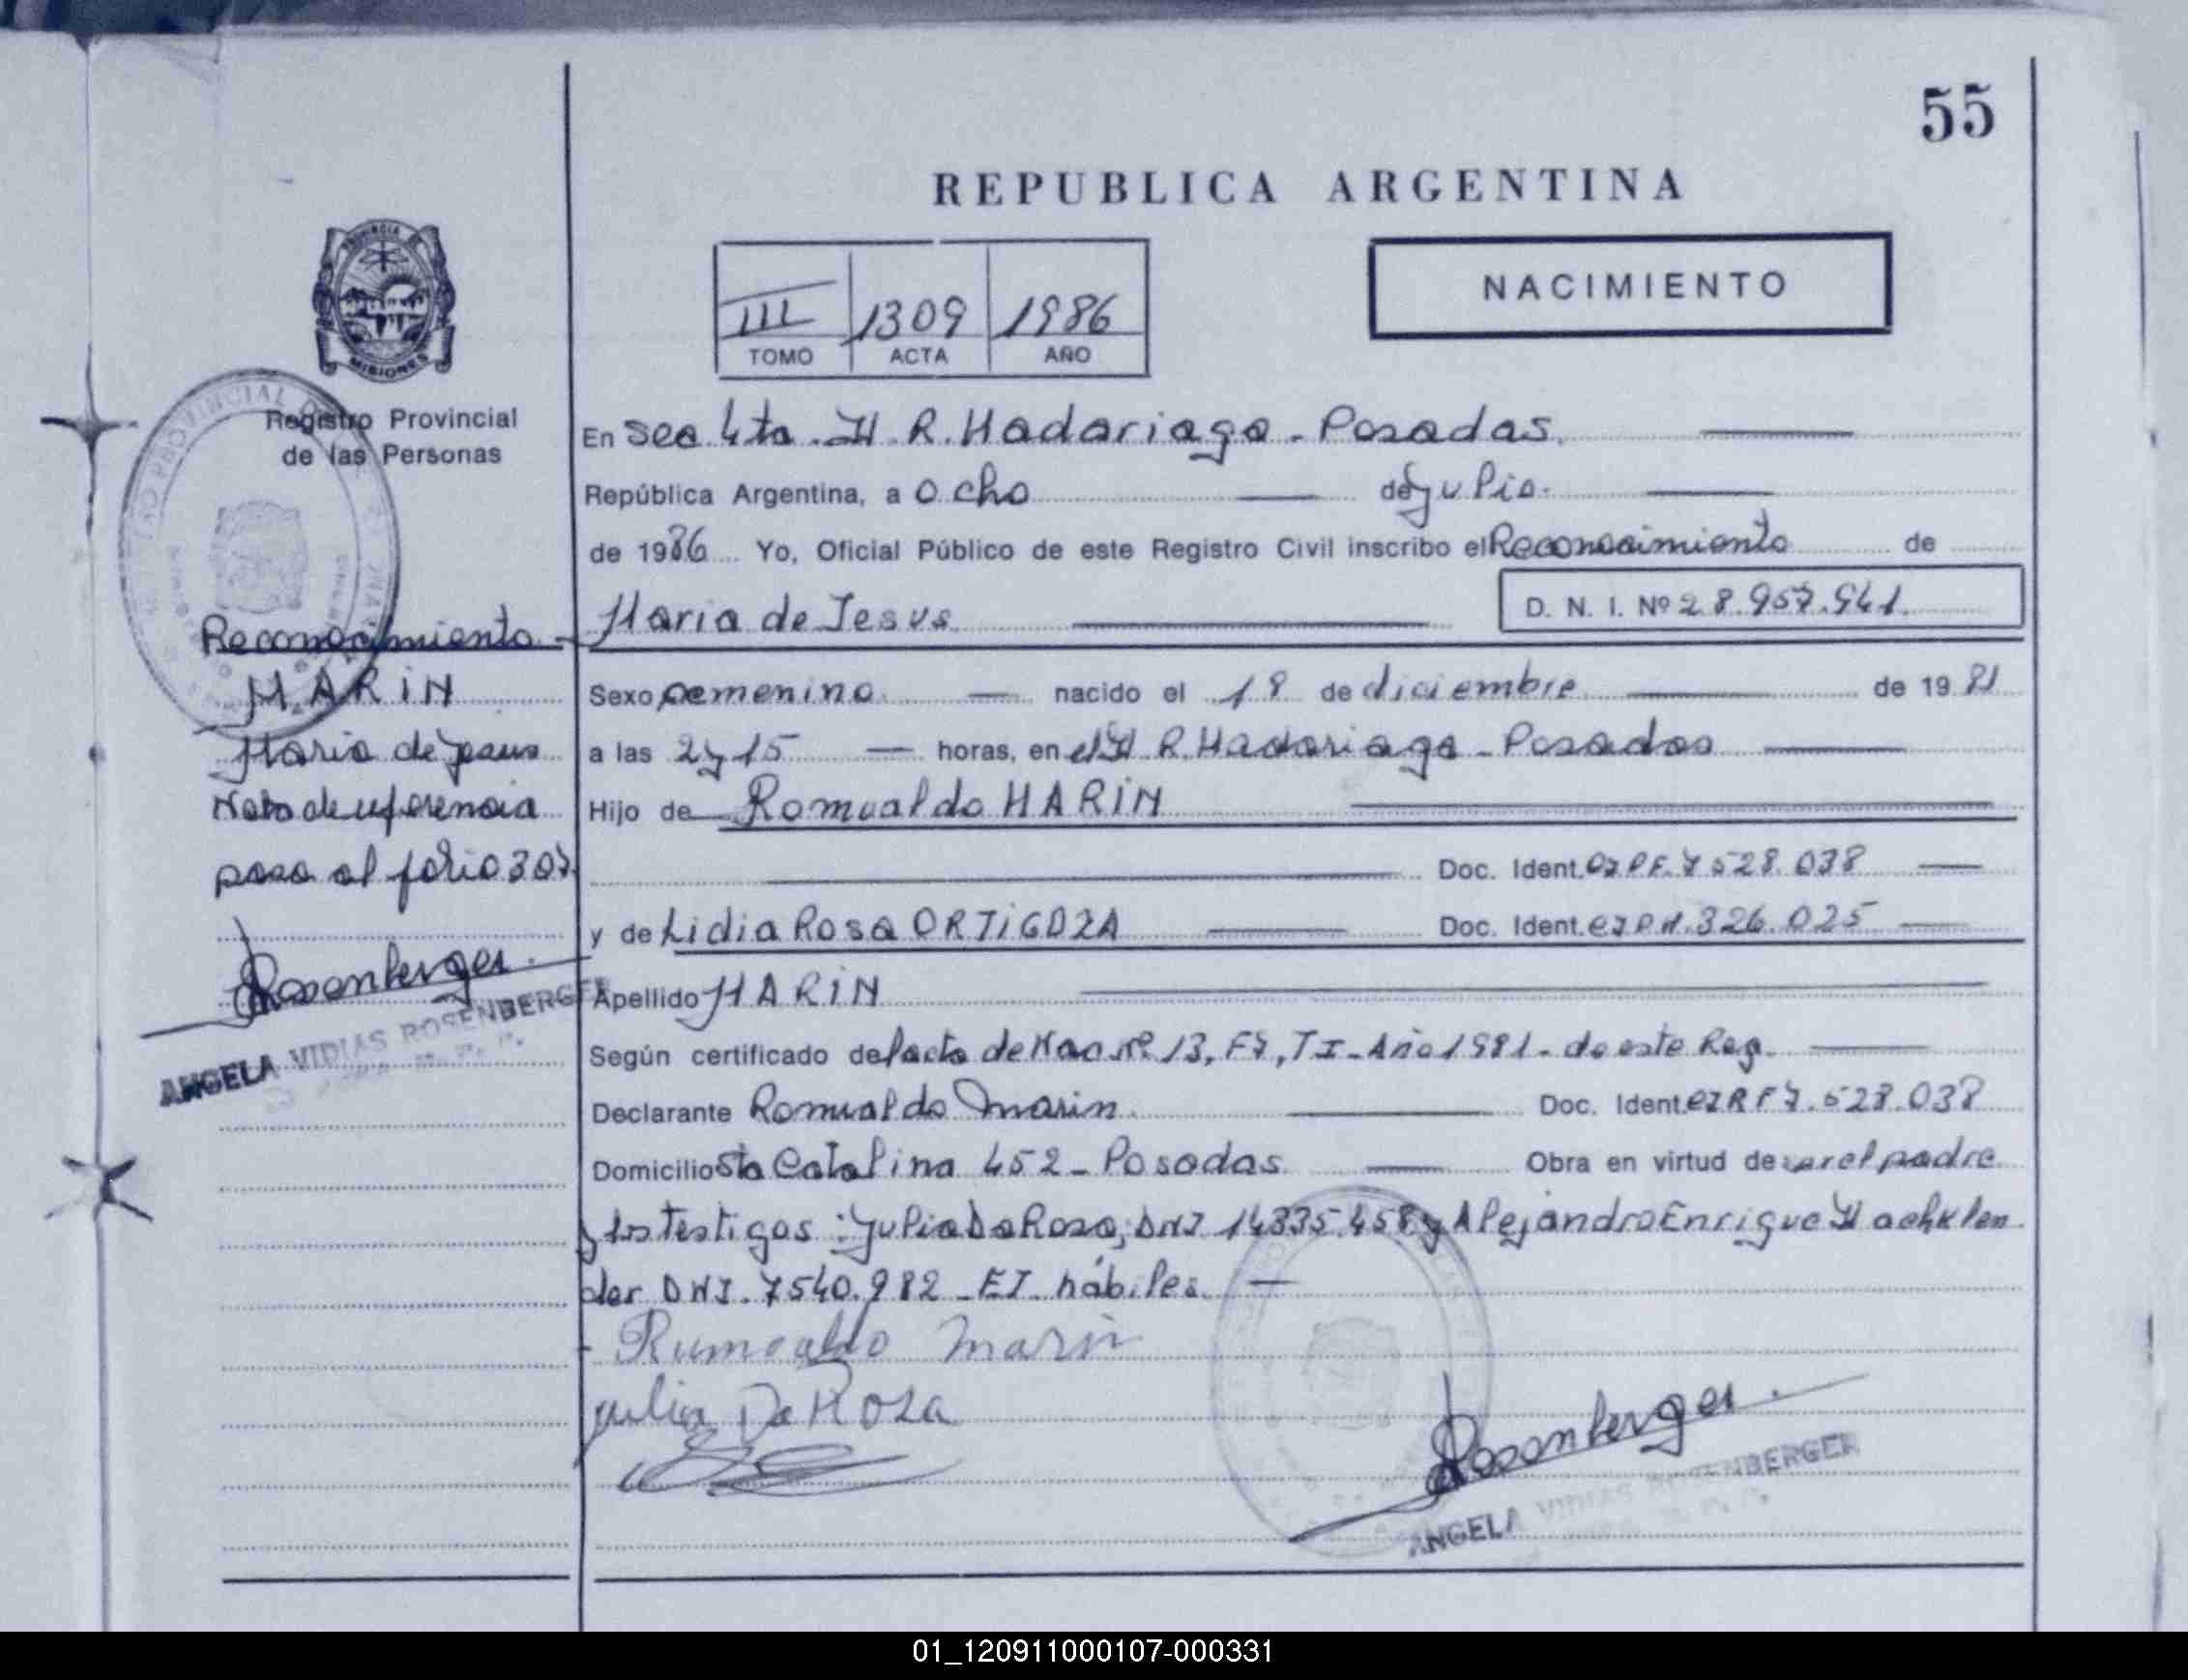 55
REPUBLICA ARGENTINA
NACIMIENTO
III 1309 1986
TOMO ACTA AÑO
PROVINCIA DE
MISIONES
Registro Provincial
de las Personas
Reconocimiento
MARIN
Maria de Jesus
Nota de referencia
pasa al folio 307
Rosenberger
ANGELA VIDIAS ROSENBERGER
En Sec 4ta. H. R. Madariaga - Posadas.
República Argentina, a ocho de Julio.
de 1986 Yo, Oficial Público de este Registro Civil inscribo el Reconocimiento de
Maria de Jesus D. N. I. Nº 28.957.941
Sexo femenino nacido el 18 de diciembre de 1981
a las 2 y 15 horas, en el H. R. Madariaga - Posadas
Hijo de Romualdo MARIN
Doc. Ident. 7528.038
y de Lidia Rosa ORTIGOZA Doc. Ident. 326.025
Apellido MARIN
Según certificado del acta de Nac nº 13, F7, TI - Año 1981 - de este Reg.
Declarante Romualdo Marin. Doc. Ident. 7.528.038
Domicilio Sta Catalina 452 - Posadas Obra en virtud de ser el padre
y los Testigos: Julia Da Rosa, DNI 14335.458 y Alejandro Enrique
der DNI. 7540.982 - EI. hábiles. —
Rumoaldo Marin
Julia Da Roza
Rosenberger
ANGELA VIDIAS ROSENBERGER
01_120911000107-000331